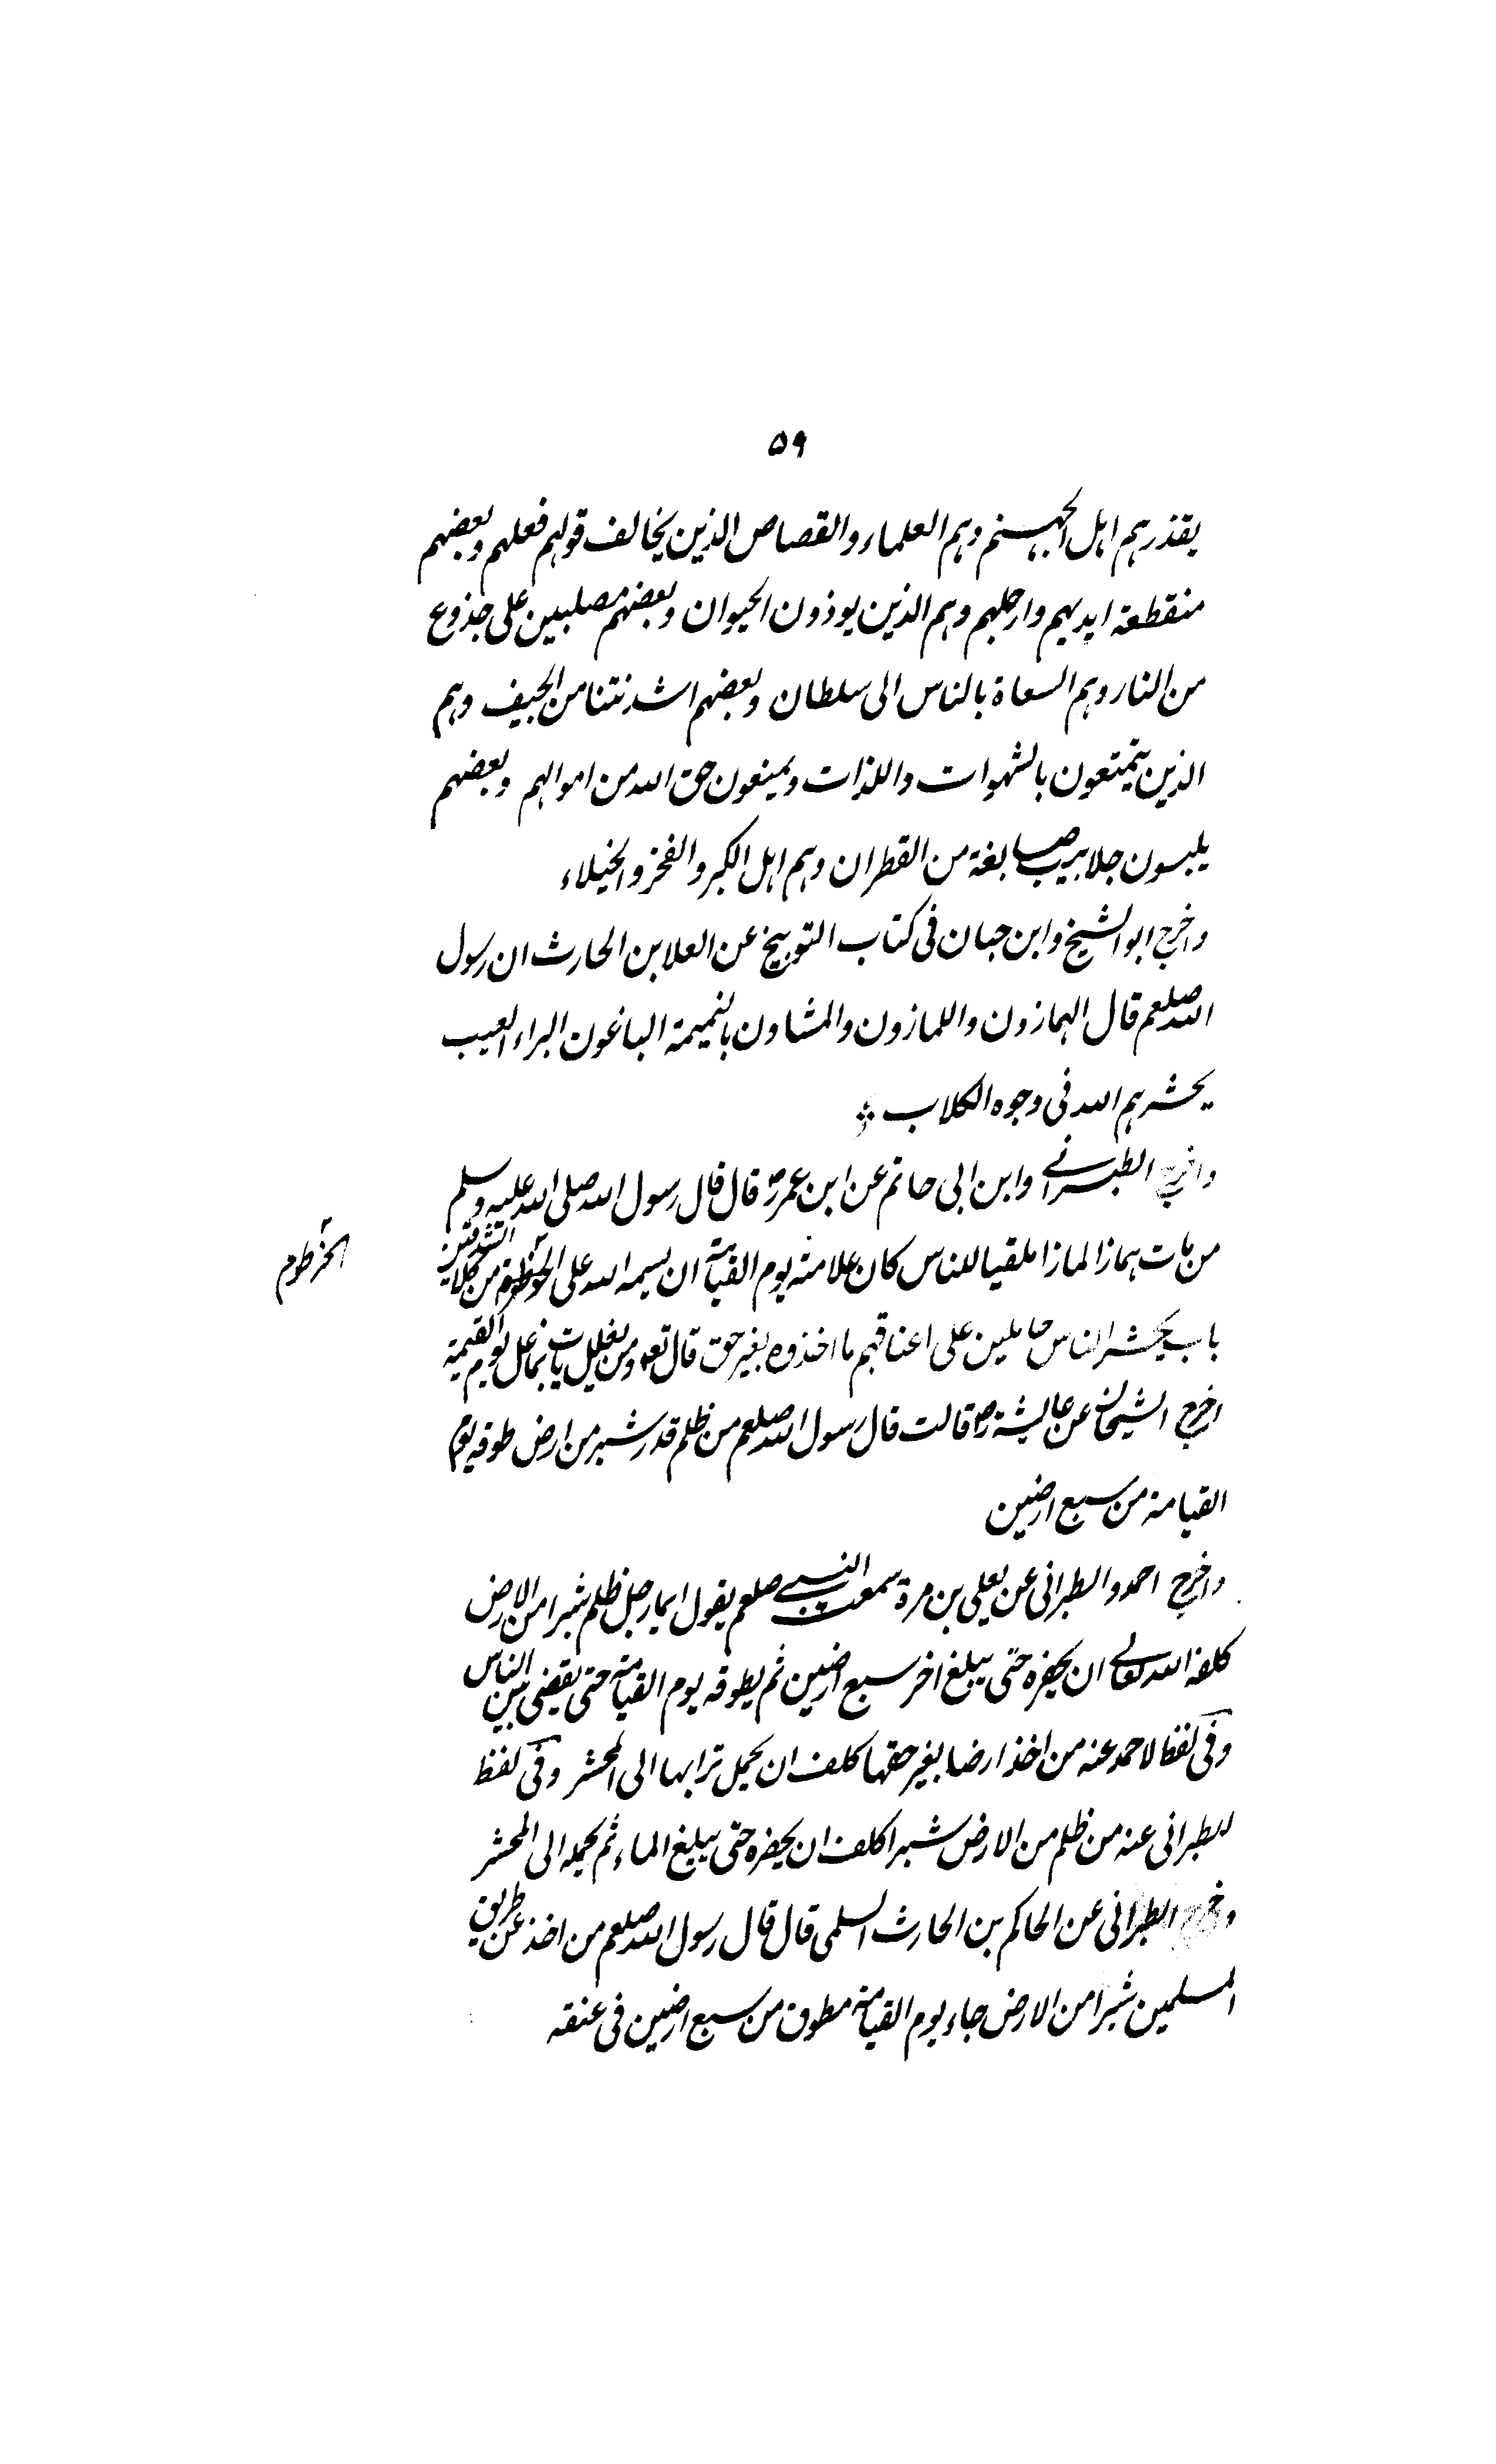 ۵۹
يقذرهم اهل الجهنم وهم العلماء والقصاص الذين يخالف قولهم فعلهم وبعضهم
منقطعة ايديهم وارجلهم وهم الذين يوذون الحيوان وبعضهم مصلبين على جذوع
من النار وهم السعاة بالناس الى سلطان وبعضهم اشد نتنا من الجيف وهم
الذين يتمتعون بالشهوات واللذات ويمنعون حق الله من اموالهم وبعضهم
يلبسون جلابيب صابغة من القطران وهم اهل الكبر والفخر والخيلاء
واخرج ابو الشيخ وابن حبان فى كتاب التوبيخ عن العلا بن الحارث ان رسول
الله صلعم قال الهمازون واللمازون والمشاون بالنميمة الباغون البراء العيب
يحشرهم الله فى وجوه الكلاب
واخرج الطبرانى وابن ابى حاتم عن ابن عمر رض قال قال رسول الله صلى الله عليه وسلم
من بات همازا لمازا ملقيا للناس كان علامته يوم القيامة ان يسمه الله على الخرطوم من كلا الشدقين
الخرطوم
باب يحشر الناس حاملين على اعناقهم ما اخذوه بغير حق قال تعه ومن يغلل يات بما غل يوم القيمة
اخرج الشيخان عن عايشة رض قالت قال رسول الله صلعم من ظلم قدر شبر من ارض طوقه يوم
القيامة من سبع ارضين
واخرج احمد والطبرانى عن يعلى بن مرة سمعت النبى صلعم يقول ايما رجل ظلم شبرا من الارض
كلفه الله تعالى ان يحفره حتى يبلغ اخر سبع ارضين ثم يطوقه يوم القيامة حتى يقضى بين الناس
وفى لفظ لاحمد عنه من اخذ ارضا بغير حقها كلف ان يحمل ترابها الى المحشر وفى لفظ
للطبرانى عنه من ظلم من الارض شبرا كلف ان يحفره حتى يبلغ الماء ثم يحمله الى المحشر
واخرج الطبرانى عن الحاكم بن الحارث السلمى قال قال رسول الله صلعم من اخذ عن طريق
المسلمين شبرا من الارض جاء يوم القيامة مطوق من سبع ارضين فى عنقه